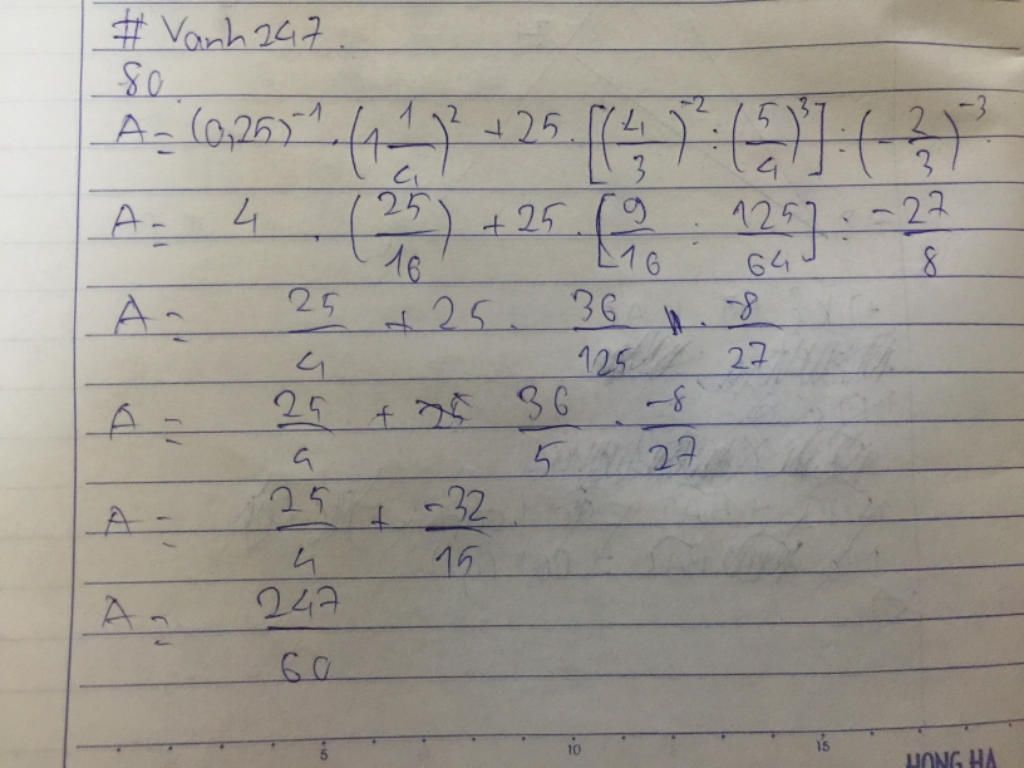 # Vanh247.
80.
A = (0,25)⁻¹ . (1 1/4)² + 25 . [(4/3)⁻² : (5/4)³] : (-2/3)⁻³.
A = 4 . (25/16) + 25 . [9/16 : 125/64] : -27/8
A = 25/4 + 25 . 36/125 . -8/27
A = 25/4 + 36/5 . -8/27
A = 25/4 + -32/15 .
A = 247/60
5 10 15
HONG HA